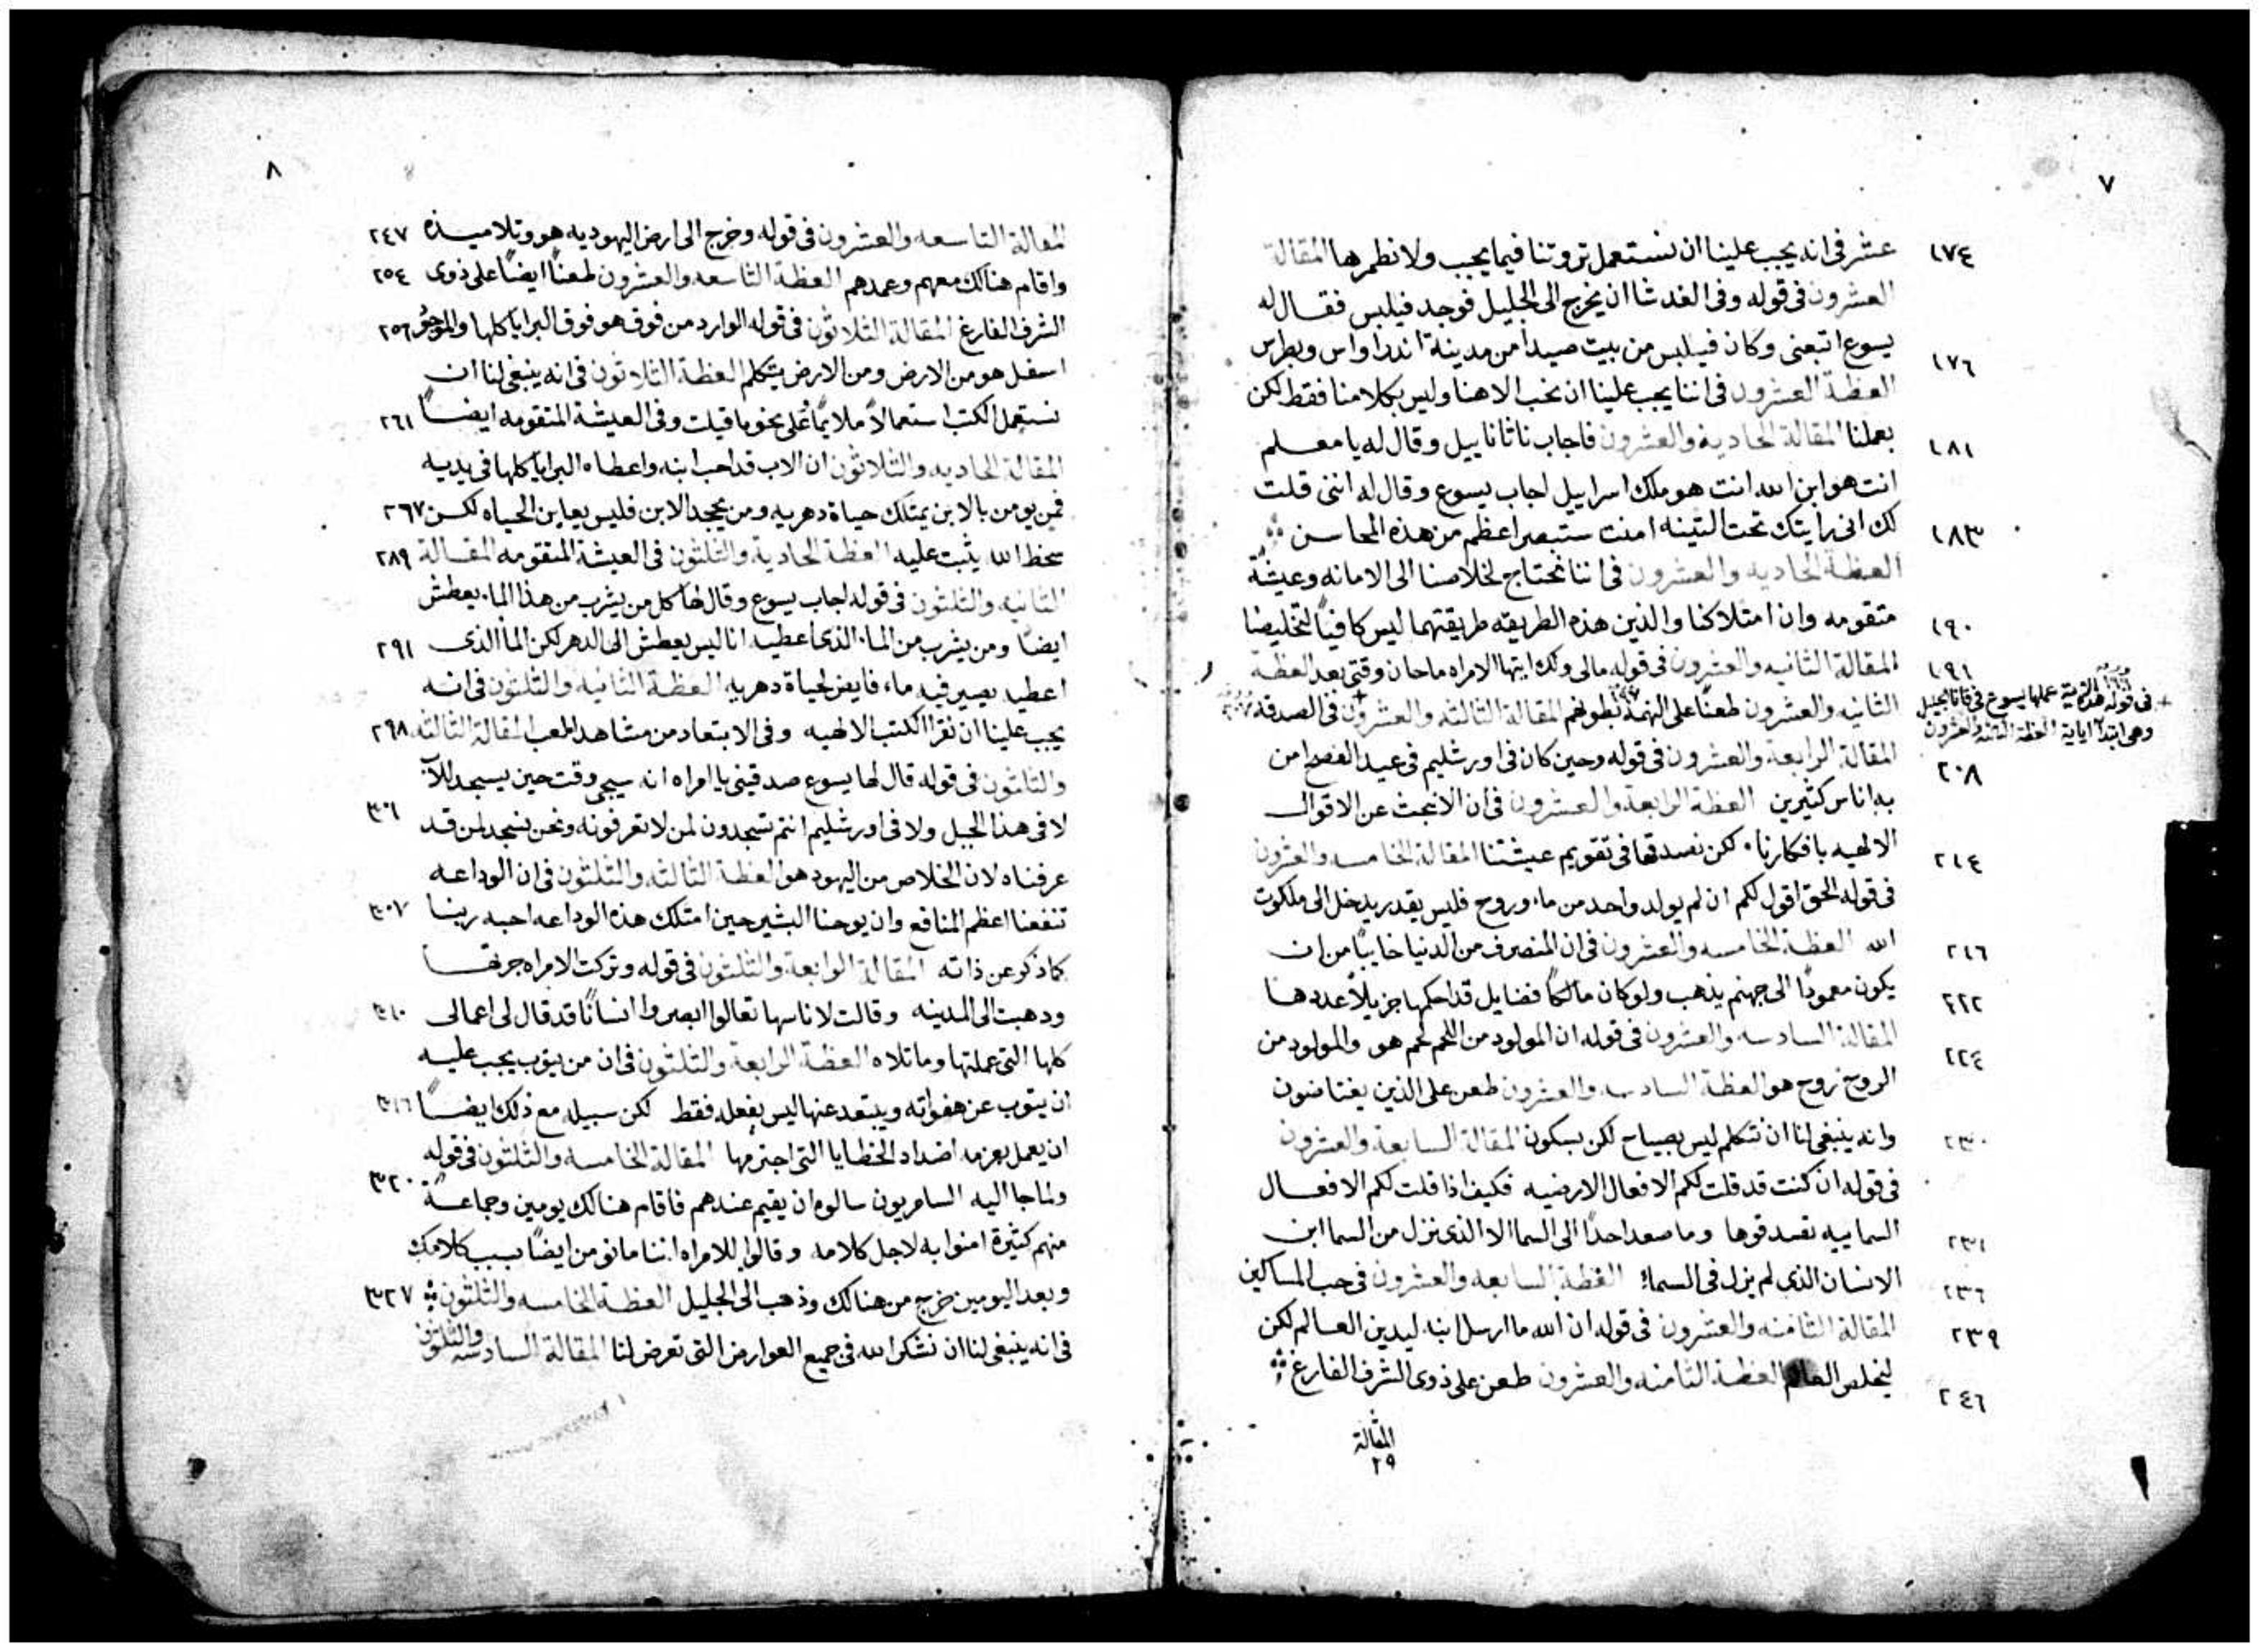 ٧
عشر فى انه يجب علينا ان نستعمل ثروتنا فيما يجب ولا نطمرها المقالة ١٧٤
العشرون فى قوله وفى الغد شا ان يخرج الى الجليل فوجد فيلبس فقال له
يسوع اتبعنى وكان فيلبس من بيت صيدا من مدينة اندراواس وبطرس ١٧٦
العظة العشرون فى اننا يجب علينا ان نحب الاهنا وليس بكلامنا فقط لكن
بعملنا المقالة الحادية والعشرون فاجاب ناثاناييل وقال له يا معلم ١٨١
انت هو ابن الله انت هو ملك اسراييل اجاب يسوع وقال له اننى قلت
لك انى رايتك تحت التينه امنت ستبصر اعظم من هذه المحاسن ١٨٣
العظة الحاديه والعشرون فى اننا نحتاج لخلاصنا الى الامانه وعيشة
متقومه وان امتلاكنا والذين هذه الطريقه طريقتهما ليس كافيًا لتخليصنا ١٩٠
المقالة الثانيه والعشرون فى قوله مالى ولك ايتها الامراه ما حان وقتى بعد العظة ١٩١
الثانيه والعشرون طعنًا على النهمة بطونهم المقالة الثالثه والعشرون فى الصدقه
+ فى قوله هذه عملها يسوع فى قانا الجليل
وهى ابتدا اياية العظة الثالثة والعشرون
المقالة الرابعة والعشرون فى قوله وحين كان فى اورشليم فى عيد الفصح امن ٢٠٨
به اناس كثيرين العظة الرابعة والعشرون فى ان لا نبحث عن الاقوال
الالهيه بافكارنا لكن نصدقها فى تقويم عيشتنا المقالة الخامسه والعشرون ٢١٤
فى قوله الحق اقول لكم ان لم يولد واحد من ماء وروح فليس يقدر يدخل الى ملكوت
الله العظة الخامسه والعشرون فى ان المنصرف من الدنيا خايبًا من ان ٢١٦
يكون معمودًا الى جهنم يذهب ولو كان مالكًا فضايل قد احكمها جزيلاً عددها ٢٢٢
المقالة السادسه والعشرون فى قوله ان المولود من اللحم لحم هو والمولود من ٢٢٤
الروح روح هو العظة السادسه والعشرون طعن على الذين يغتاضون
وانه ينبغى لنا ان نتكلم ليس بصياح لكن بسكون المقالة السابعة والعشرون ٢٣٠
فى قوله ان كنت قد قلت لكم الافعال الارضيه فكيف اذا قلت لكم الافعال
السماييه تصدقوها وما صعد احدًا الى السما الا الذى نزل من السما ابن ٢٣١
الانسان الذى لم يزل فى السما العظة السابعه والعشرون فى حب المساكين ٢٣٦
المقالة الثامنه والعشرون فى قوله ان الله ما ارسل ابنه ليدين العالم لكن ٢٣٩
ليخلص العالم العظة الثامنه والعشرون طعن على ذوى الشرف الفارغ ٢٤٦
المقالة
٢٩
٨
المقالة التاسعه والعشرون فى قوله وخرج الى ارض اليهوديه هو وتلاميذه ٢٤٧
واقام هنالك معهم وعمدهم العظة التاسعه والعشرون طعنًا ايضًا على ذوى ٢٥٤
الشرف الفارغ المقالة الثلاثون فى قوله الوارد من فوق هو فوق البرايا كلها والموجود ٢٥٦
اسفل هو من الارض ومن الارض يتكلم العظة الثلاثون فى انه ينبغى لنا ان
نستعمل الكتب استعمالاً ملايمًا على نحو ما قيلت وفى العيشة المتقومه ايضًا ٢٦١
المقالة الحاديه والثلاثون ان الاب قد احب ابنه واعطاه البرايا كلها فى يديه
فمن يومن بالابن يمتلك حياة دهريه ومن يجحد الابن فليس يعاين الحياه لكن ٢٦٧
سخط الله يثبت عليه العظة الحادية والثلثون فى العيشة المتقومه المقالة ٢٨٩
الثانيه والثلثون فى قوله اجاب يسوع وقال لها كل من يشرب من هذا الماء يعطش
ايضًا ومن يشرب من الماء الذى اعطيه انا ليس يعطش الى الدهر لكن الما الذى ٢٩١
اعطيه يصير فيه ماء فايض لحياة دهريه العظة الثانيه والثلثون فى انه
يجب علينا ان نقرا الكتب الالهيه وفى الابتعاد من مشاهد الملعب المقالة الثالثه ٢٩٨
والثلثون فى قوله قال لها يسوع صدقينى يا امراه انه سيجى وقت حين يسجد للاب
لا فى هذا الجبل ولا فى اورشليم انتم تسجدون لمن لا تعرفونه ونحن نسجد لمن قد ٣٠٦
عرفناه لان الخلاص من اليهود هو العظة الثالثه والثلثون فى ان الوداعه
تنفعنا اعظم المنافع وان يوحنا البشير حين امتلك هذه الوداعه احبه ربنا ٣٠٧
كما ذكر عن ذاته المقالة الرابعة والثلثون فى قوله وتركت الامراه جرتها
وذهبت الى المدينه وقالت لاناسها تعالوا ابصروا انسانًا قد قال لى اعمالى ٣١٠
كلها التى عملتها وما تلاه العظة الرابعة والثلثون فى ان من يتوب يجب عليه
ان يتوب عن هفواته ويبتعد عنها ليس بفعله فقط لكن سبيله مع ذلك ايضًا ٣١٦
ان يعمل بعزمه اضداد الخطايا التى اجترمها المقالة الخامسه والثلثون فى قوله
ولما جا اليه السامريون سالوه ان يقيم عندهم فاقام هنالك يومين وجماعة ٣٢٠
منهم كثيرة امنوا به لاجل كلامه وقالوا للامراه اننا ما نومن ايضًا بسبب كلامك
وبعد اليومين خرج من هنالك وذهب الى الجليل العظة الخامسه والثلثون ٣٢٧
فى انه ينبغى لنا ان نشكر الله فى جميع العوارض التى تعرض لنا المقالة السادسه والثلثون